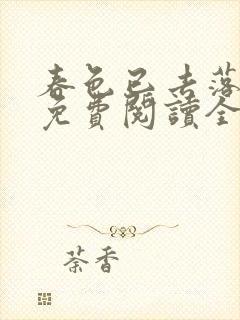 春色已去落
免費閱讀全
荼香